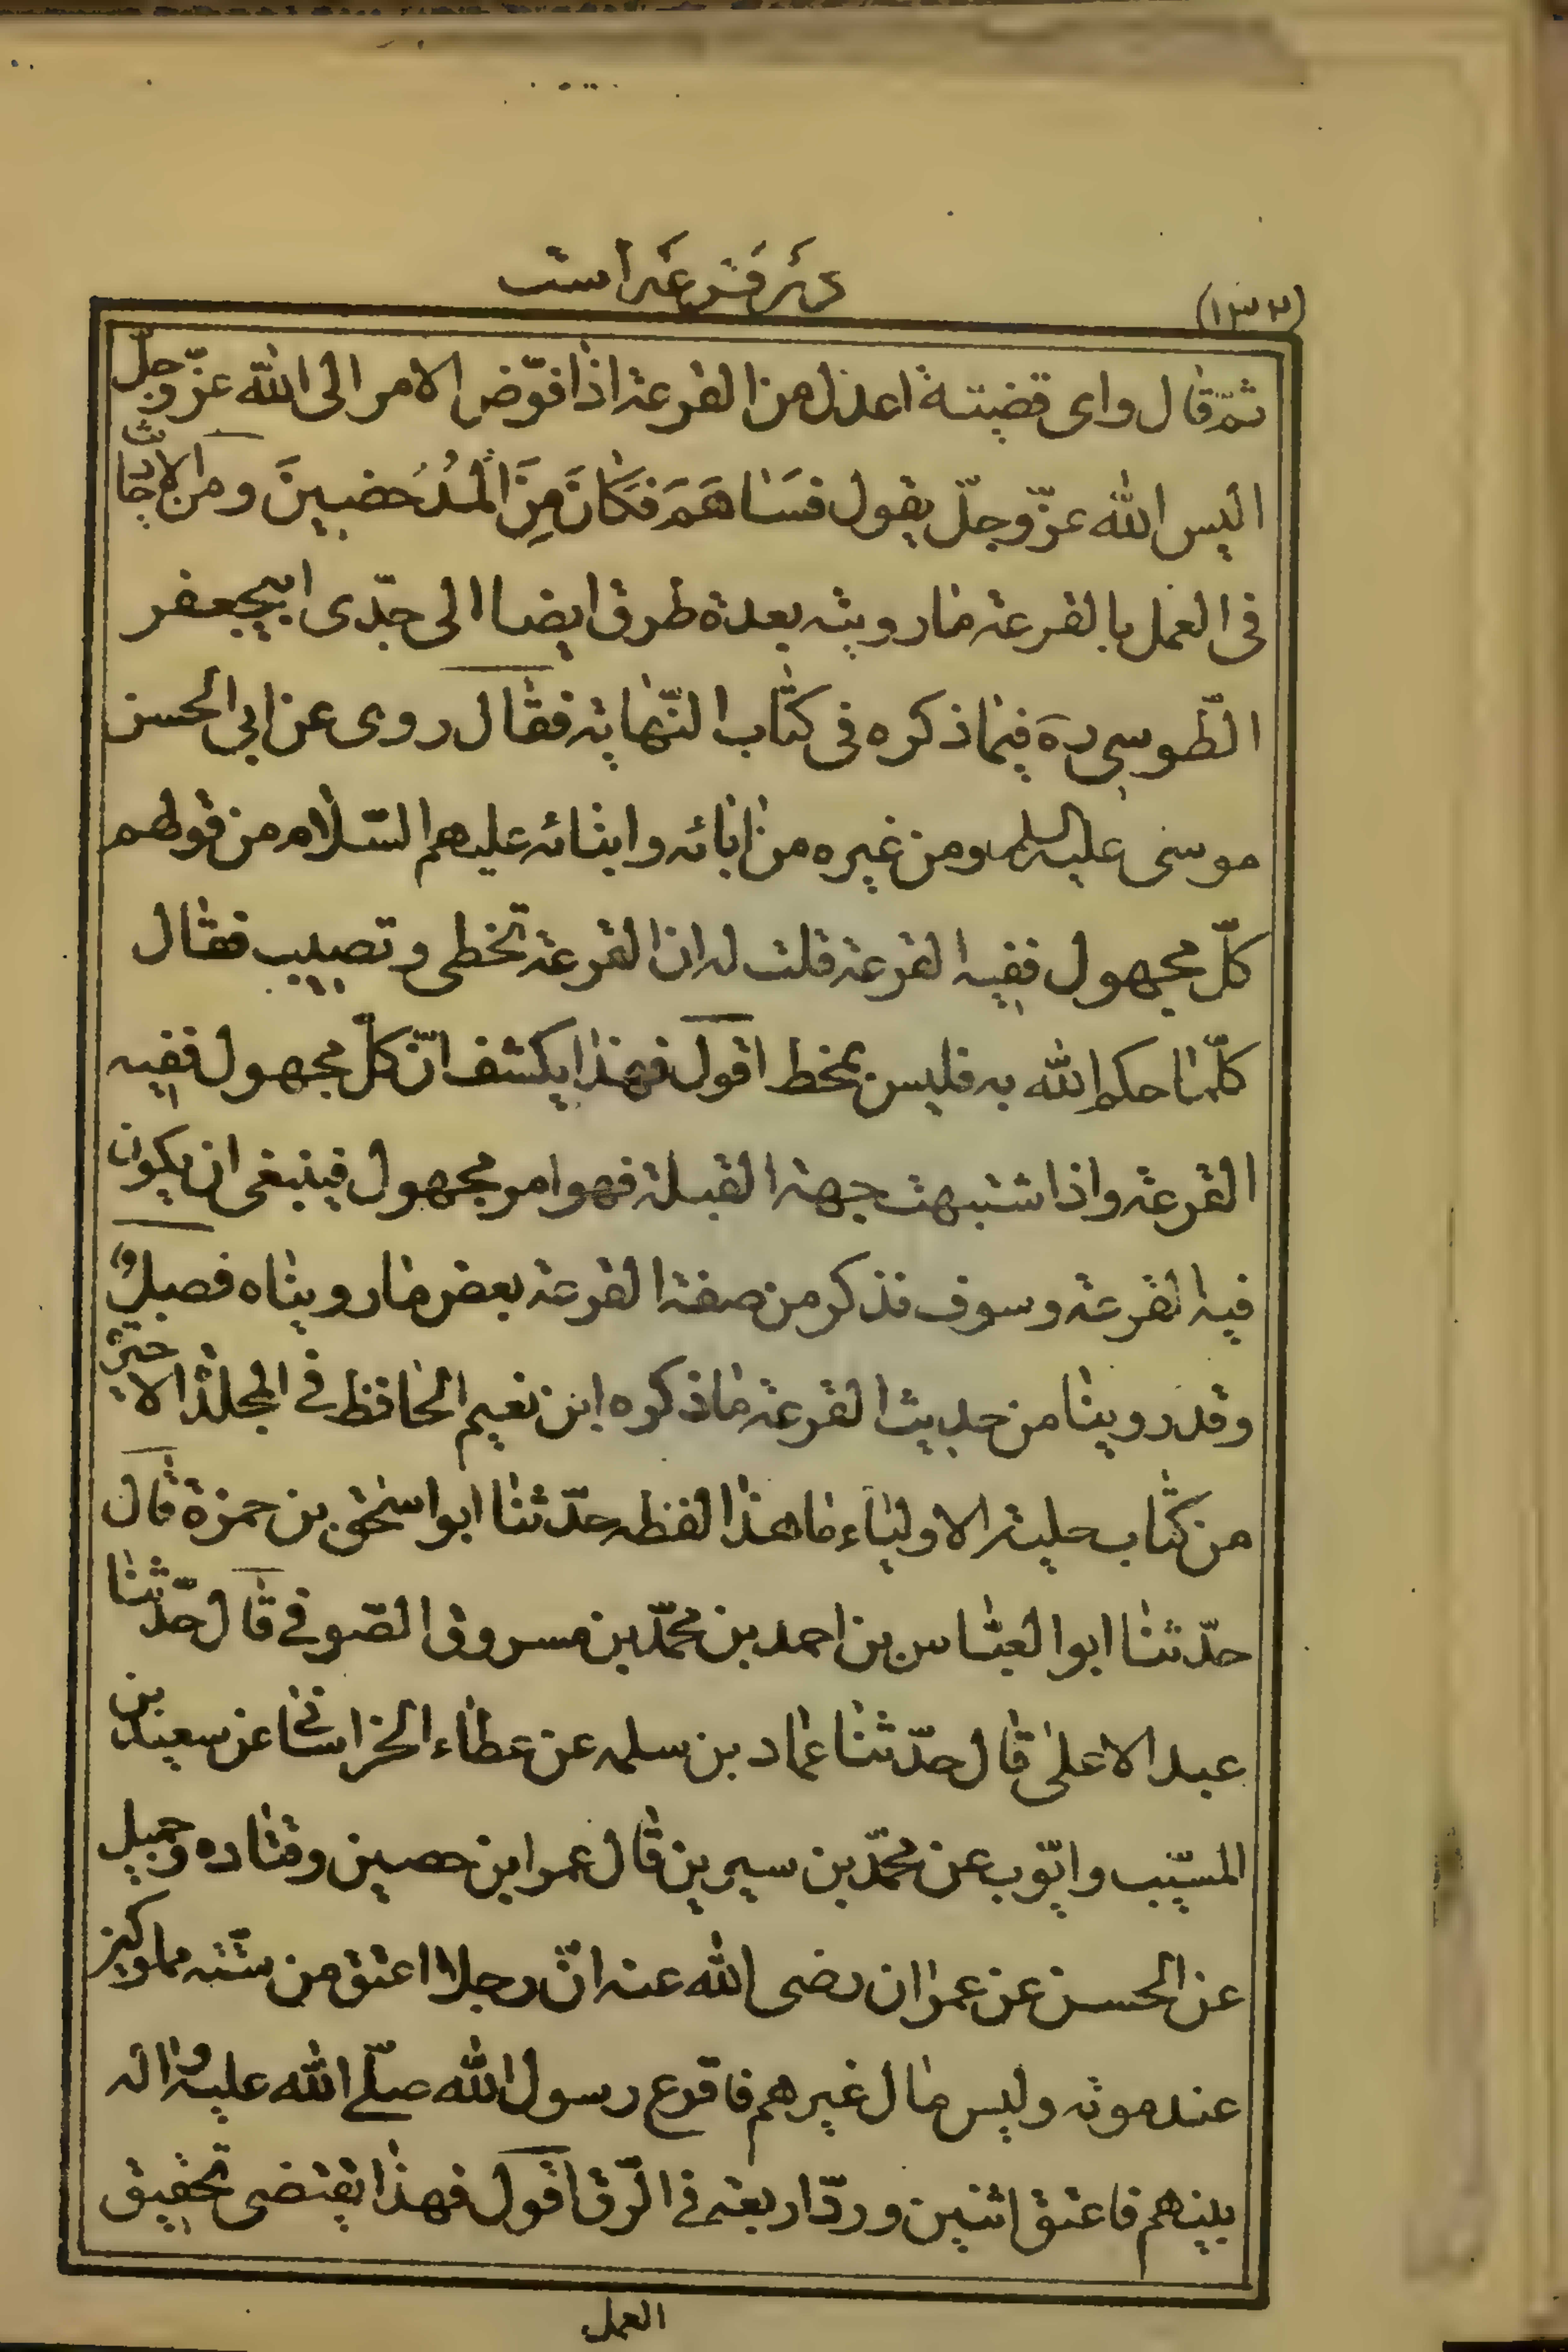 (١٣٣)
در قرعه است
ثمّ قال وای قضیتة اعدل من القرعة اذا فوّض الامر الی الله عزّوجلّ
الیس الله عزّوجلّ یقول فَسَاهَمَ فَکَانَ مِنَ الْمُدْحَضینَ ومن الاحادیث
فی العمل بالقرعة مارویته بعدة طرق ایضا الی جدّی ابیجعفر
الطّوسی ره فیما ذکره فی کتاب النّهایة فقال روی عن ابی الحسن
موسی علیه السلم ومن غیره من ابائه وابنائه علیهم السّلام من قولهم
کلّ مجهول ففیه القرعة قلت له ان القرعة تخطی وتصیب فقال
کلّما حکم الله به فلیس بمخط اقول فهذا یکشف انّ کلّ مجهول ففیه
القرعة واذا اشتبهت جهة القبلة فهو امر مجهول فینبغی ان یکون
فیه القرعة وسوف نذکر من صفة القرعة بعض مارویناه فصل و
وقد روینا من حدیث القرعة ماذکره ابن نعیم الحافظ فی المجلّد الا
من کتاب حلیة الاولیاء ماهذا لفظه حدّثنا ابو اسحٰق بن حمزة قال
حدّثنا ابو العبّاس بن احمد بن محمّد بن مسروق الصّوفی قال حدّثنا
عبد الاعلی قال حدّثنا عماد بن سلمه عن عطاء الخراسانی عن سعید بن
المسیّب وایّوب عن محمّد بن سیرین قال عمر ابن حصین وقتاده وحمیل
عن الحسن عن عمران رضی الله عنه انّ رجلا اعتق من ستّة مملوکین
عند موته ولیس مال غیرهم فاقرع رسول الله صلّی الله علیه واله
بینهم فاعتق اثنین وردّ اربعة فی الرّق اقول فهذا یقتضی تحقیق
العمل